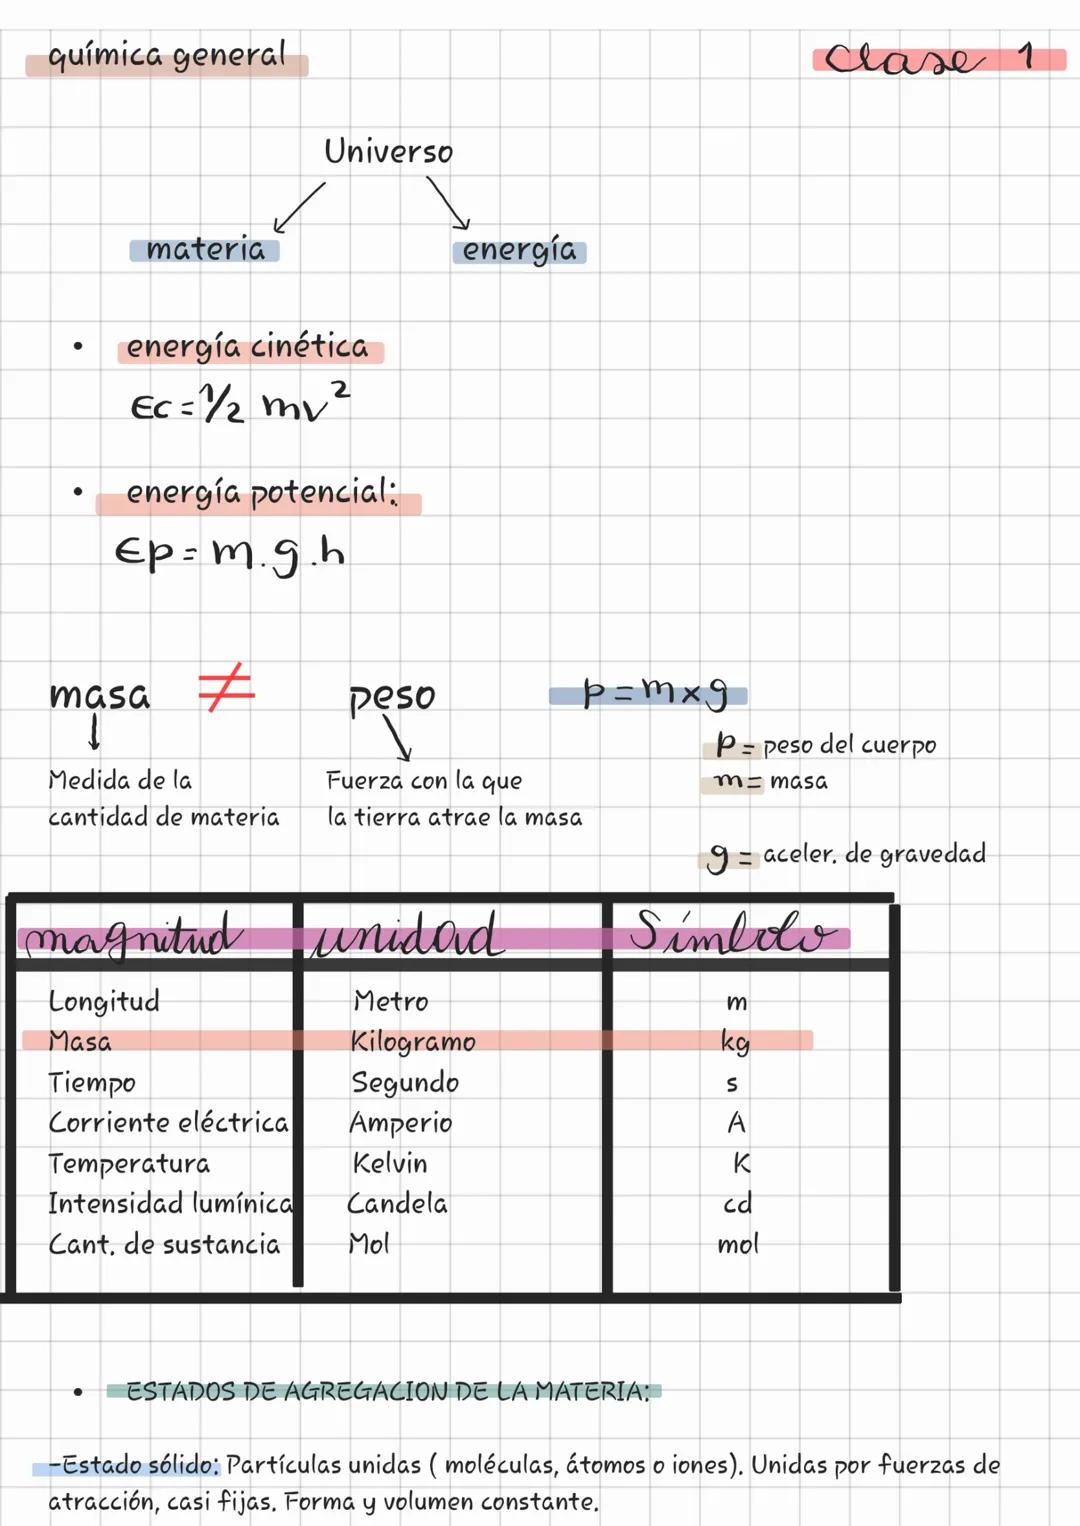 química general
Clase 1
Universo
materia energía
• energía cinética
Ec = 1/2 mv²
• energía potencial:
Ep = m.g.h
masa ≠ peso p = m x g
P = peso del cuerpo
m = masa
g = aceler. de gravedad
Medida de la
cantidad de materia
Fuerza con la que
la tierra atrae la masa
magnitud unidad Símbolo
Longitud Metro m
Masa Kilogramo kg
Tiempo Segundo s
Corriente eléctrica Amperio A
Temperatura Kelvin K
Intensidad lumínica Candela cd
Cant. de sustancia Mol mol
• ESTADOS DE AGREGACION DE LA MATERIA:
-Estado sólido: Partículas unidas ( moléculas, átomos o iones). Unidas por fuerzas de
atracción, casi fijas. Forma y volumen constante.